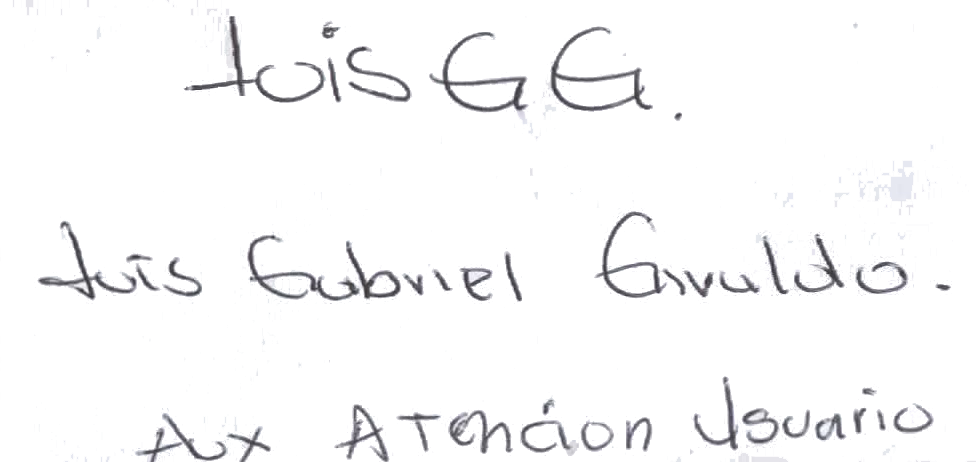 Luis GG.
Luis Gabriel Giraldo.
Aux Atención Usuario